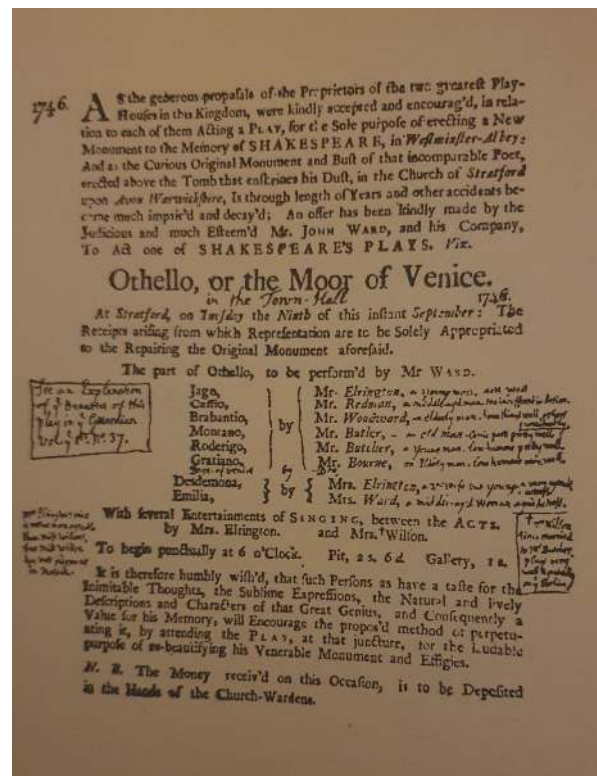 1746.
AS the generous proposals of the Proprietors of the two greatest Play-
Houses in this Kingdom, were kindly accepted and encourag'd, in rela-
tion to each of them Acting a PLAY, for the Sole purpose of erecting a New
Monument to the Memory of SHAKESPEARE, in Westminster-Abbey:
And as the Curious Original Monument and Bust of that incomparable Poet,
erected above the Tomb that enshrines his Dust, in the Church of Stratford
upon Avon Warwickshire, Is through length of Years and other accidents be-
come much impair'd and decay'd; An offer has been kindly made by the
Judicious and much Esteem'd Mr. JOHN WARD, and his Company,
To Act one of SHAKESPEARE'S PLAYS. Viz.
Othello, or the Moor of Venice.
in the Town-Hall 1746.
At Stratford, on Tuesday the Ninth of this instant September: The
Receipts arising from which Representation are to be Solely Appropriated
to the Repairing the Original Monument aforesaid.
The part of Othello, to be perform'd by Mr WARD.
See an Explanation
of ye Beauties of this
play in ye Guardian
Vol. ye 1st. No. 37.
Jago, Mr. Elrington, a young man, acts well
Cassio, Mr. Redman,
Brabantio, by Mr. Woodward, an elderly man.
Montano, Mr. Butler, - an old man
Roderigo, Mr. Butcher, a young man.
Gratiano, Mr. Bourne,
Desdemona, by Mrs. Elrington,
Emilia, Mrs. Ward, a middle-aged Woman,
With several Entertainments of SINGING, between the ACTS.
by Mrs. Elrington. and Mrs. Wilson.
To begin punctually at 6 o'Clock. Pit, 2 s. 6 d Gallery, 1 s.
It is therefore humbly wish'd, that such Persons as have a taste for the
Inimitable Thoughts, the Sublime Expressions, the Natural and lively
Descriptions and Characters of that Great Genius, and Consequently a
Value for his Memory, will Encourage the propos'd method of perpetu-
ating it, by attending the PLAY, at that juncture, for the Laudable
purpose of re-beautifying his Venerable Monument and Effigies.
N. B. The Money receiv'd on this Occasion, is to be Deposited
in the Hands of the Church-Wardens.